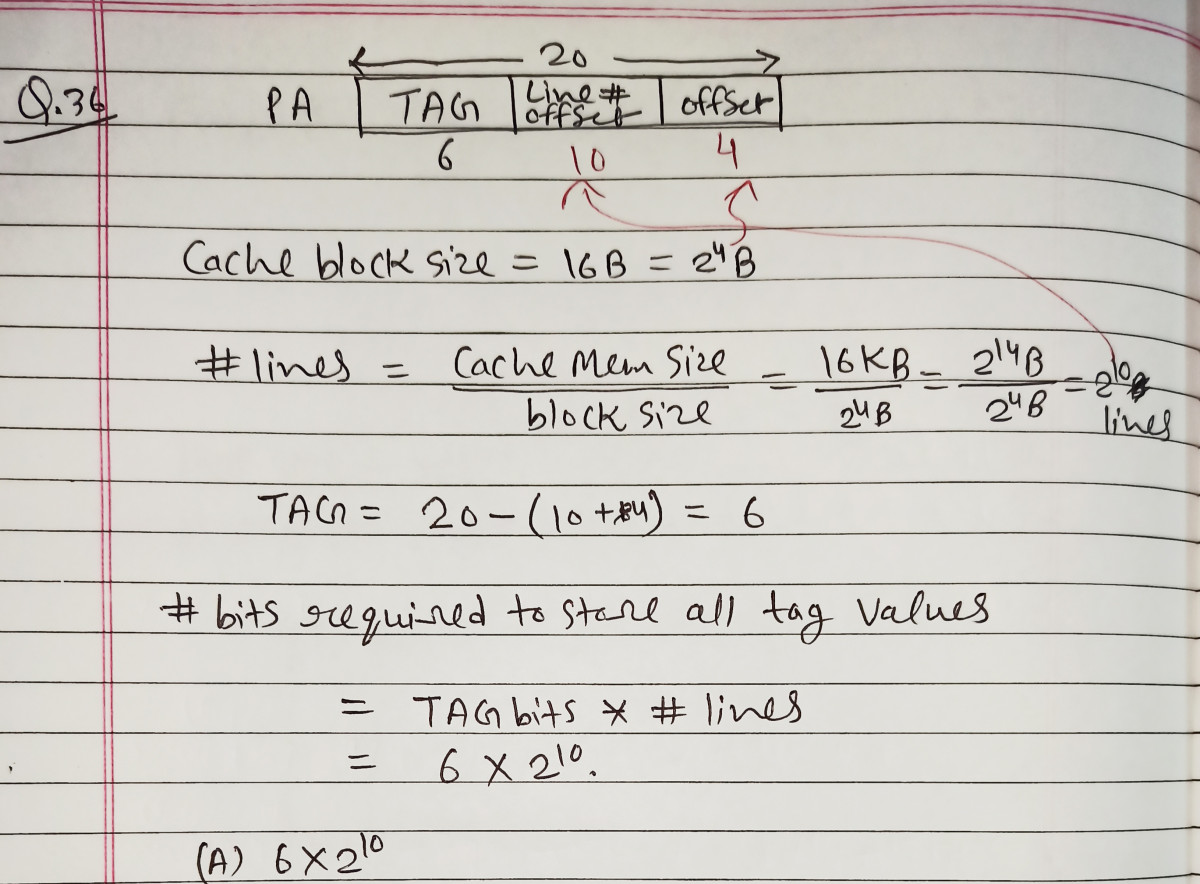 Q.36 PA TAG Line # offset offset
20
6 10 4
Cache block size = 16B = 2⁴B
# lines = Cache Mem Size / block size = 16KB / 2⁴B = 2¹⁴B / 2⁴B = 2¹⁰ lines
TAG = 20 - (10 + 4) = 6
# bits required to store all tag values
= TAG bits * # lines
= 6 × 2¹⁰.
(A) 6 × 2¹⁰